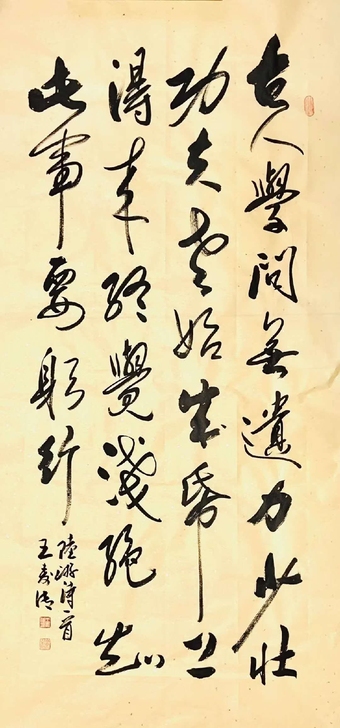 古人學問無遺力少壯
功夫老始成帋上
得來終覺淺絕知
此事要躬行
陸游詩一首
王